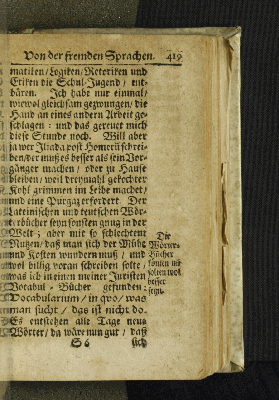 Von der fremden Sprachen. 419
matiken / Logiken / Retoriken und
Eriken die Schul-Jugend / ent-
bären. Ich habe nur einmal /
wiewol gleichsam gezwungen / die
Hand an eines andern Arbeit ge-
schlagen : und das gereuet mich
diese Stunde noch. Will aber
ja wer Iliada post Homerü schrei-
ben / der muß es besser als sein Vor-
gänger machen / oder zu Hause
bleiben / weil dreymahl gekochter
Kohl grimmen im Leibe machet /
und eine Purgaz erfordert. Der
Lateinischen und teutschen Wör-
terbücher seyn sonsten gnug in der
Welt ; aber mit so schlechtem
Nutzen / daß man sich der Mühe
und Kosten wundern muß / und
wol billig voran schreiben solte /
was ich in einen meiner Juristen
Vocabul-Bücher gefunden:
Vocabularium / in qvo / was
man sucht / das ist nicht do.
Es entstehen alle Tage neue
Wörter / da wäre nun gut / daß
S 6 sich
Die
Wörter-
Bücher
könten und
solten wol
besser
seyn.